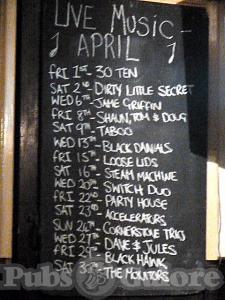 LIVE MUSIC -
APRIL
FRI 1ST- 30 TEN
SAT 2ND- DIRTY LITTLE SECRET
WED 6TH- JAMIE GRIFFIN
FRI 8TH- SHAUN, TOM & DOUG
SAT 9TH- TABOO
WED 13TH- BLACK DANIALS
FRI 15TH- LOOSE LIDS
SAT 16TH- STEAM MACHINE
WED 20TH- SWITCH DUO
FRI 22ND- PARTY HOUSE
SAT 23RD- ACCELERATORS
SUN 24TH- CORNERSTONE TRIO
WED 27TH- DAVE & JULES
FRI 29TH- BLACK HAWK
SAT 30TH- THE
Pubs Galore